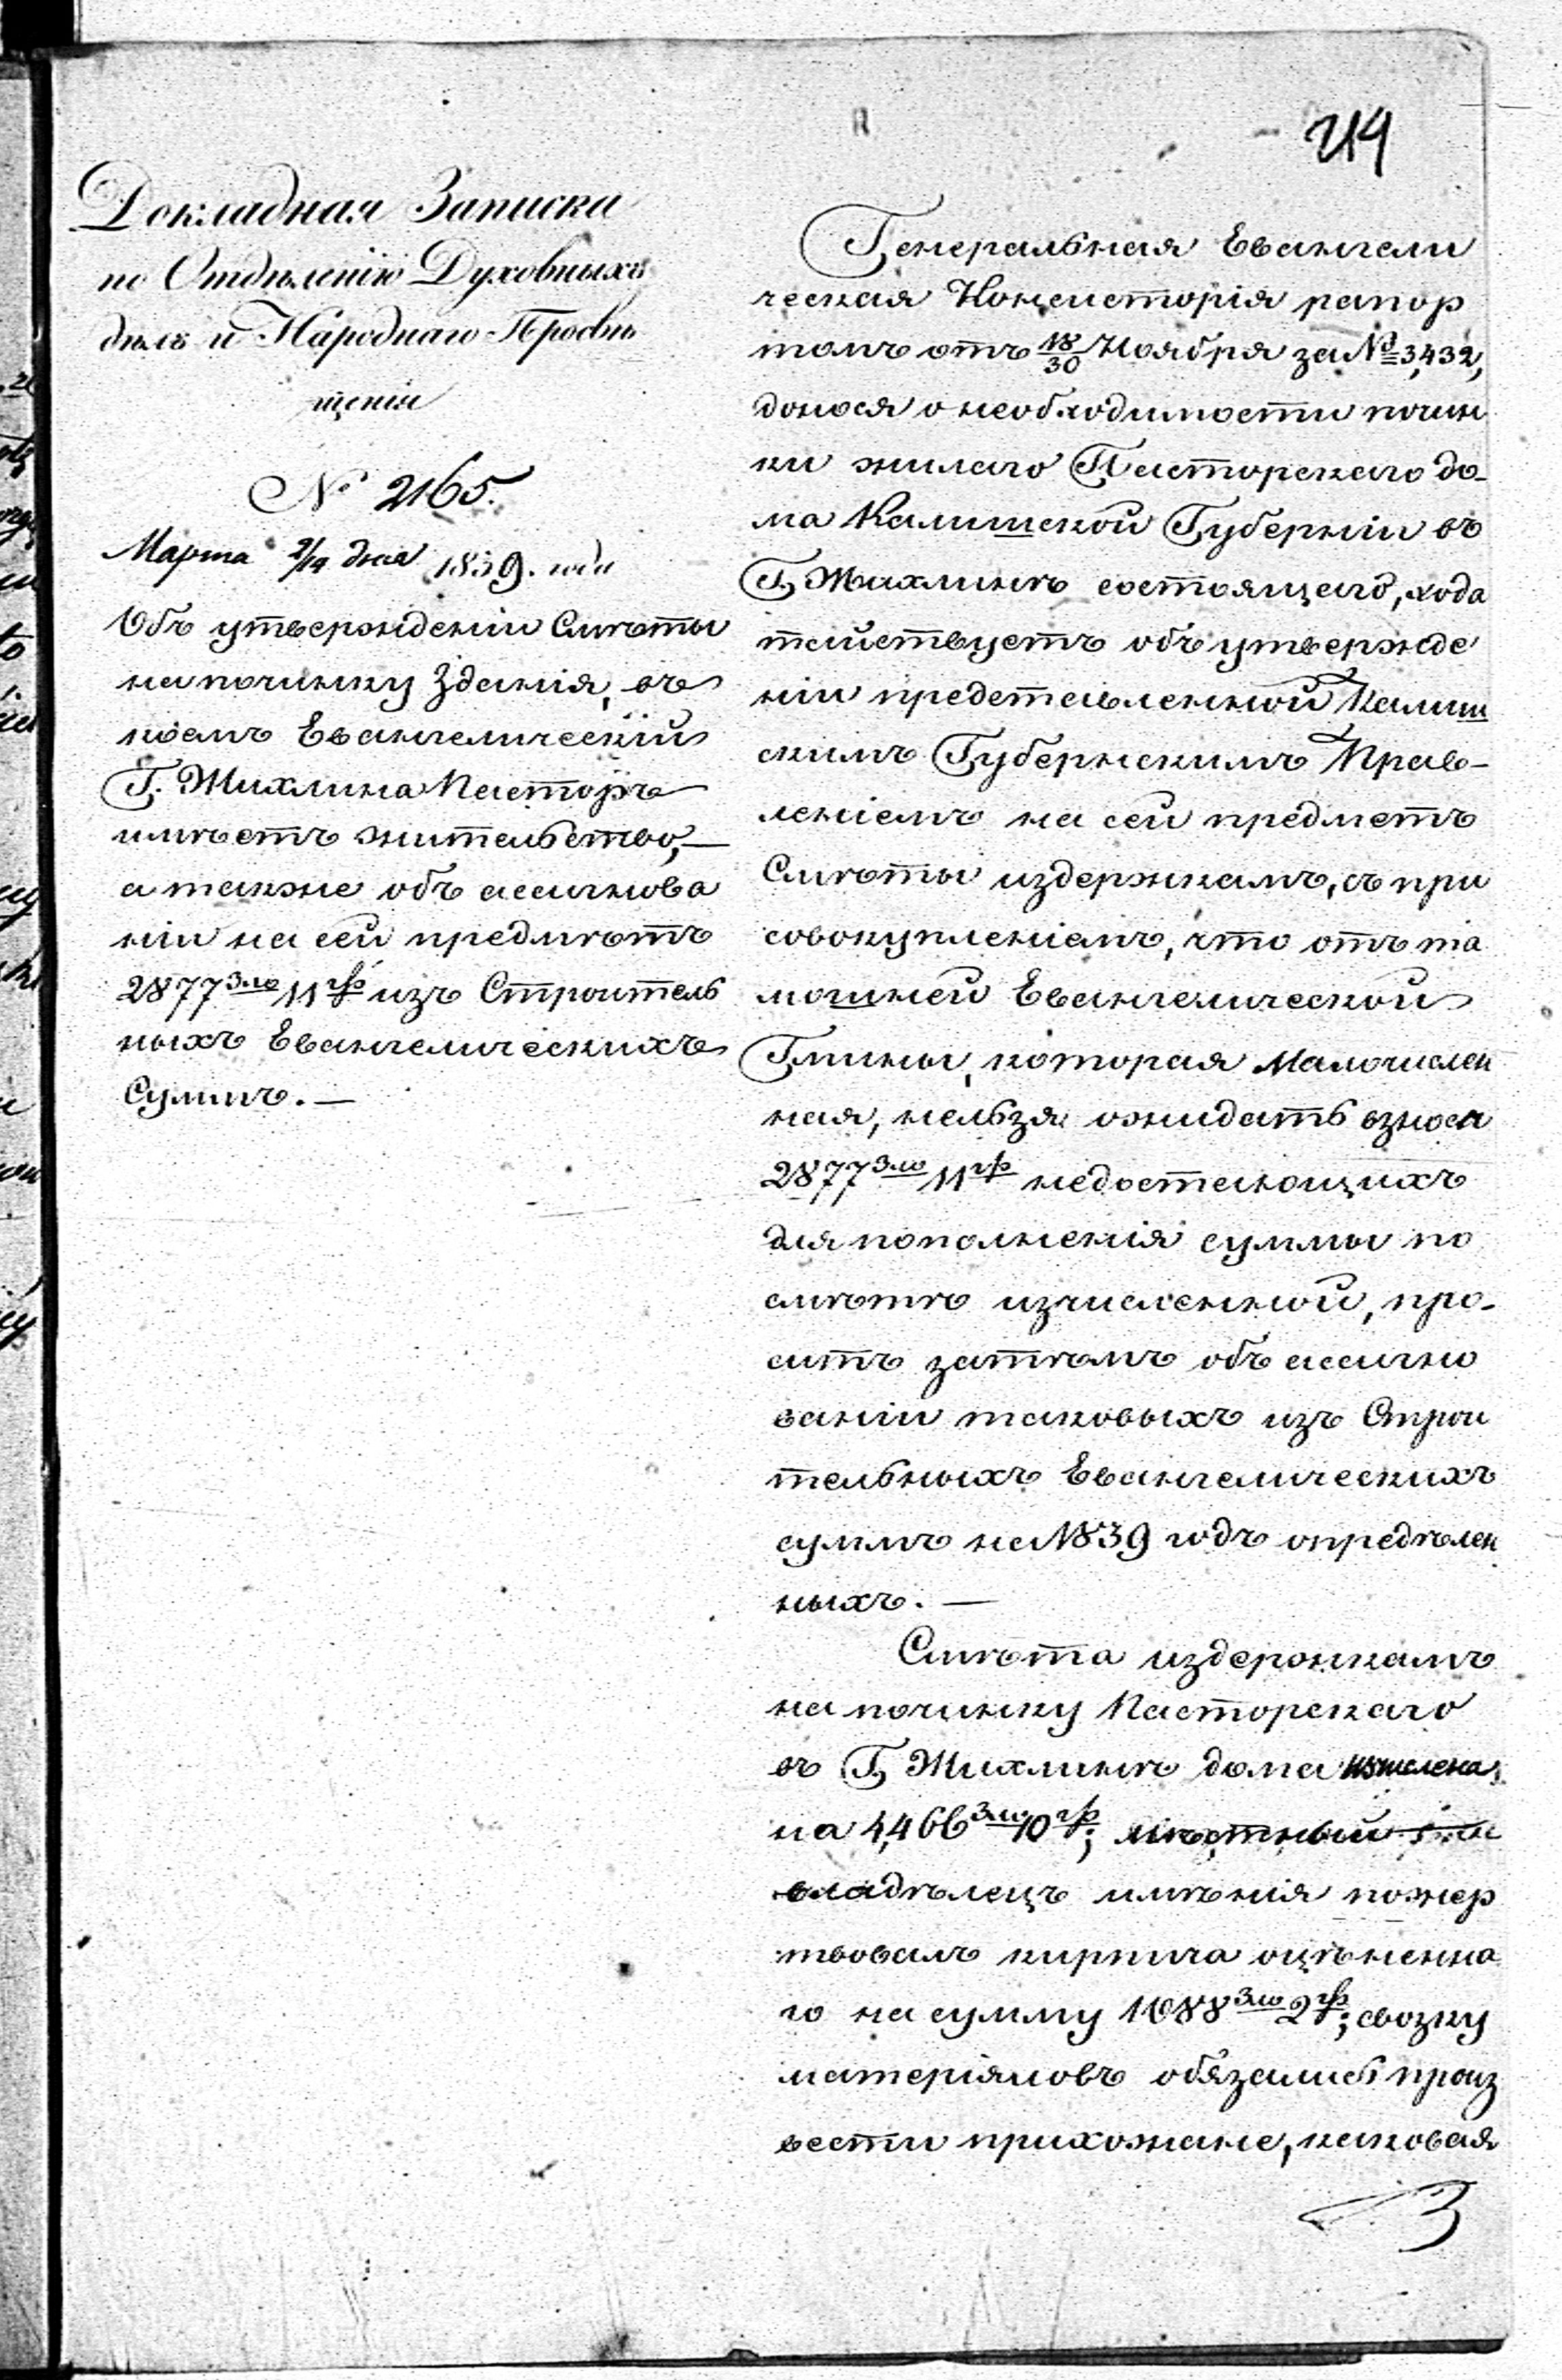 219
Докладная Записка
по Отдѣленію Духовныхъ
дѣлъ и Народнаго Просвѣ
щенія
№ 2165.
Марта 2/14 дня 1839. года
Объ утвержденіи Смѣты
на починку Зданія, въ
коемъ Евангелическій
Г. Жихлина Пасторъ
имѣетъ жительство,—
а также объ ассигнова
ніи на сей предмѣтъ
2877 Зло 11 гр изъ Строитель
ныхъ Евангелическихъ
Суммъ.—
Генеральная Евангели
ческая Консисторія рапор
томъ отъ 18/30 Ноября за № 3,432,
донося о необходимости почин
ки жилаго Пасторскаго до-
ма Калишской Губерніи въ
Г. Жихлинѣ состоящаго, хода
тайствуетъ объ утвержде
ніи представленной Калиш
скимъ Губернскимъ Прав-
леніемъ на сей предметъ
Смѣты издержкамъ, съ при
совокупленіемъ, что отъ та
мошней Евангелической
Гмины, которая Малочислен
ная, нельзя ожидать взноса
2877 Зло 11 гр недостающихъ
для пополненія суммы по
смѣтѣ изчисленной, про-
ситъ затѣмъ объ ассигно
ваніи таковыхъ изъ Строи
тельныхъ Евангелическихъ
суммъ на 1839 годъ опредѣлен
ныхъ.—
Смѣта издержкамъ
на починку Пасторскаго
въ Г. Жихлинѣ дома
на 4,466 Зло 10 гр; мѣстный
владѣлецъ имѣнія пожер
твовалъ кирпича оцѣненна
го на сумму 1088 Зло 2 гр; свозку
матеріяловъ обязались произ
вести прихожане, каковая